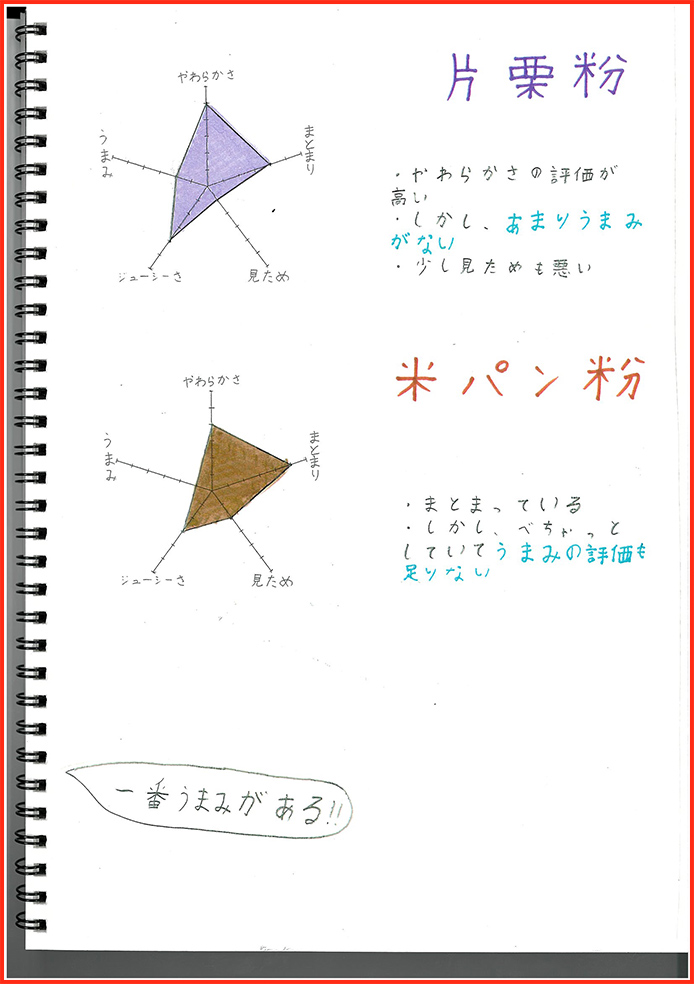 片栗粉
やわらかさ
まとまり
うまみ
ジューシーさ
見ため
・やわらかさの評価が
高い
・しかし、あまりうまみ
がない
・少し見ためも悪い
米パン粉
やわらかさ
まとまり
うまみ
ジューシーさ
見ため
・まとまっている
・しかし、べちゃっと
していてうまみの評価も
足りない
一番うまみがある!!